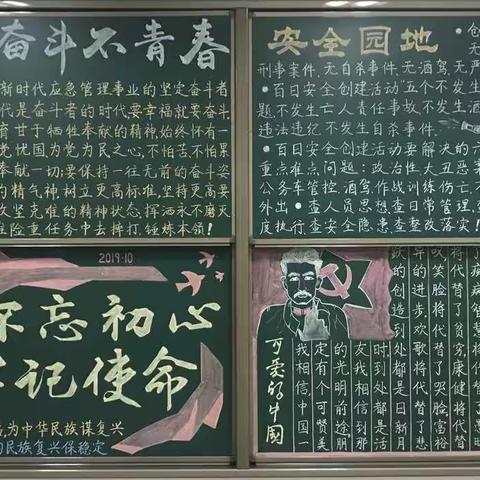 奋斗不青春
新时代应急管理事业的坚定奋斗者
代是奋斗者的时代,要幸福就要奋斗.
育甘于牺牲奉献的精神,始终怀有一
党忧国为党为民之心,不怕苦,不怕累
奉献一切;要保持一往无前的奋斗姿
的精气神,树立更高标准,坚持更高要
攻坚克难的精神状态,挥洒永不磨灭
难险重任务中去摔打,锤炼本领!
安全园地
刑事案件,无自杀事件,无酒驾,无严
●百日安全创建活动"五个不发生
题,不发生亡人责任事故,不发生酒
违法违纪,不发生自杀事件.
●百日安全创建活动要解决的六
重点难点问题:政治性大丑恶案
公务车管控,酒驾,作战训练伤亡,不
外出 ●查人员思想,查日常管理,查
度执行,查安全隐患,查整改落实!
2019·10
不忘初心
牢记使命
为中华民族谋复兴
民族复兴保稳定
可爱的中国
我相信,中国一
定有个可赞美
的光明前途,朋
友,我相信,到那
时,到处都是活
跃的创造,到处都是日新月
异的进步,欢歌将代替了悲
叹,笑脸将代替了哭脸,富裕
将代替了贫穷,康健将代替